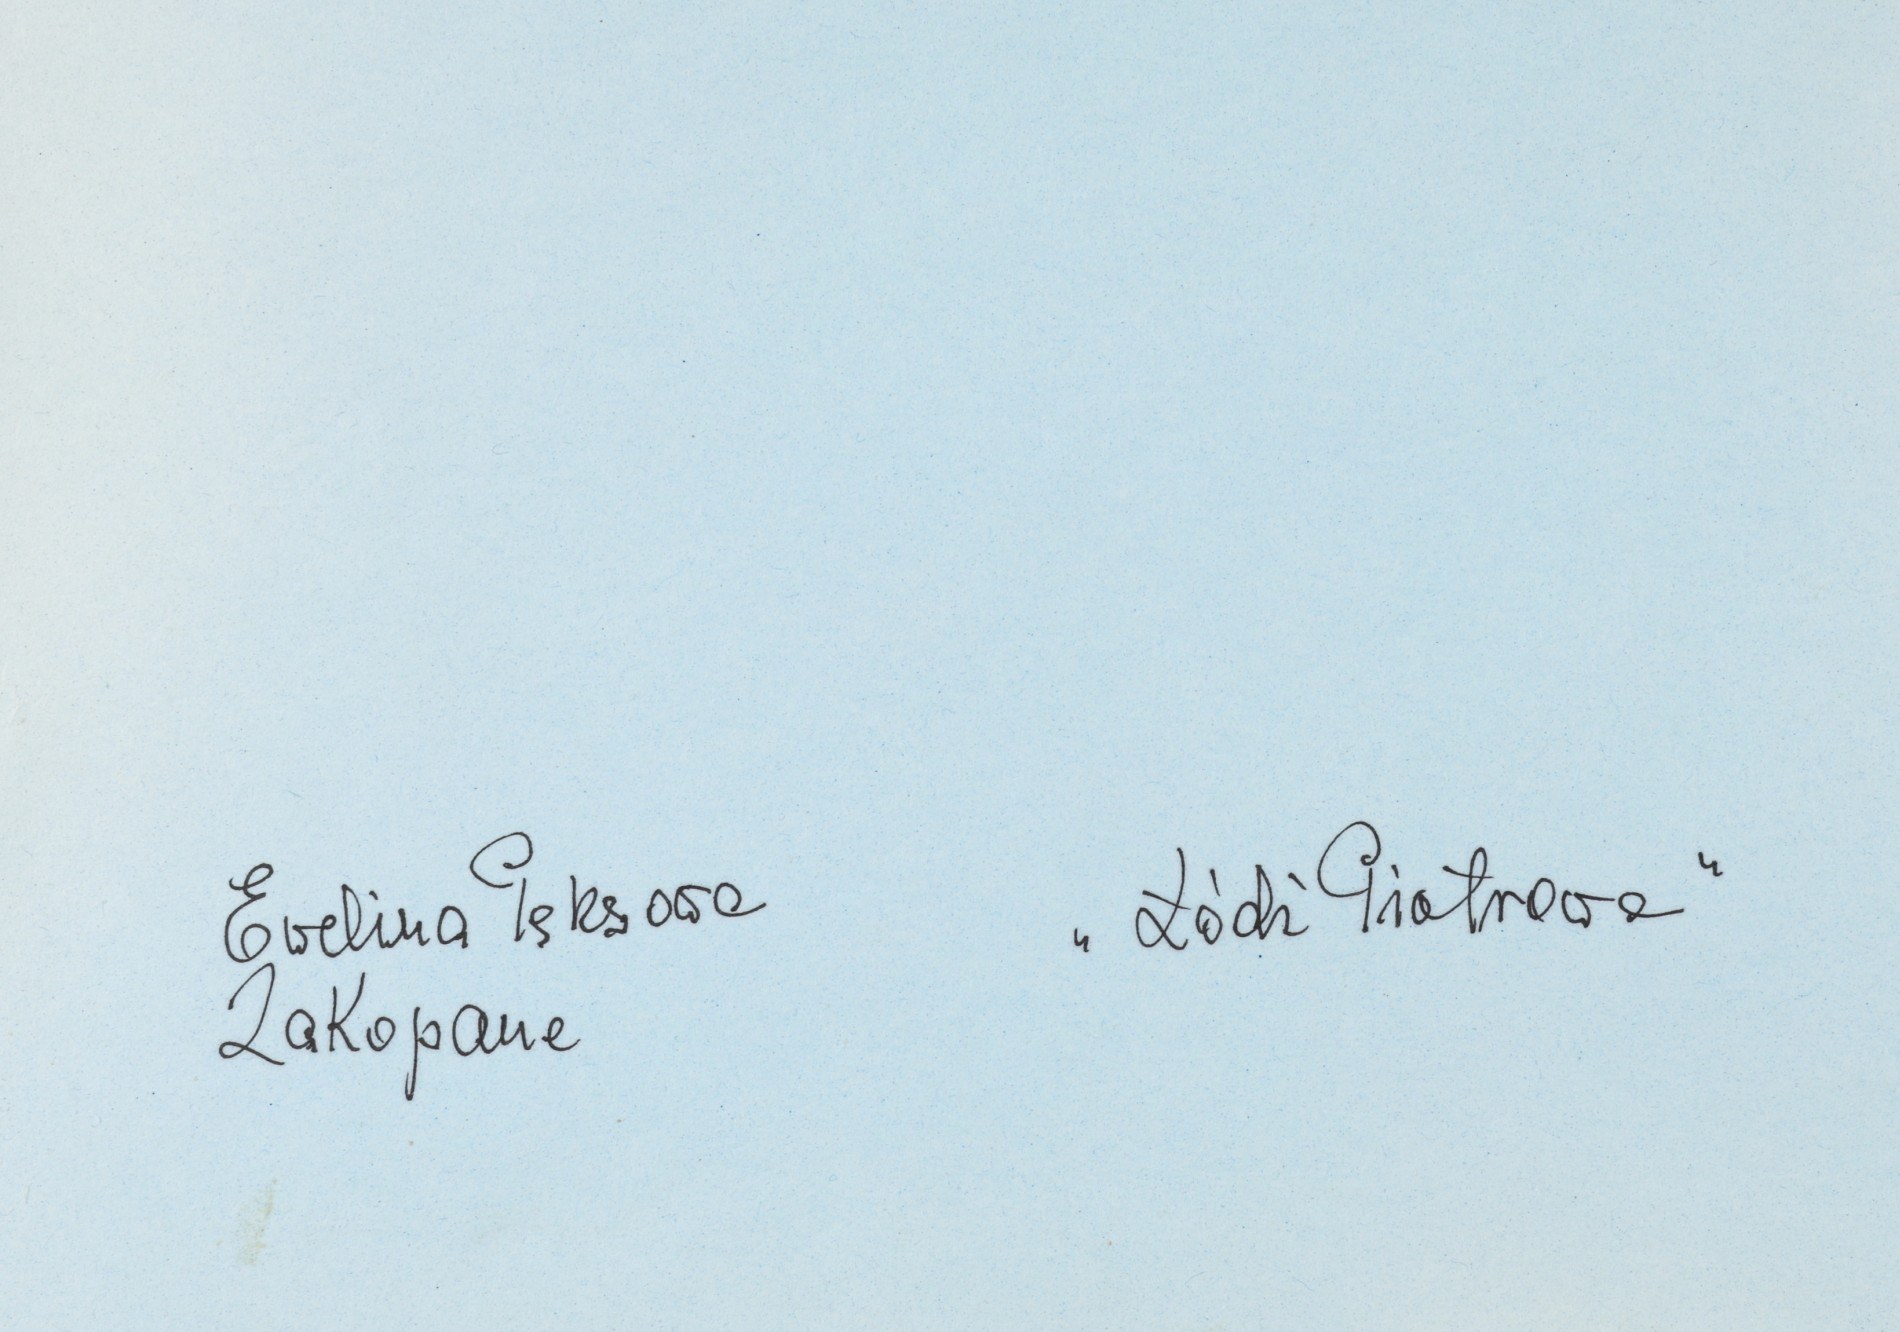 Ewelina Pęksowa
Zakopane
„Łódź Piotrowa”